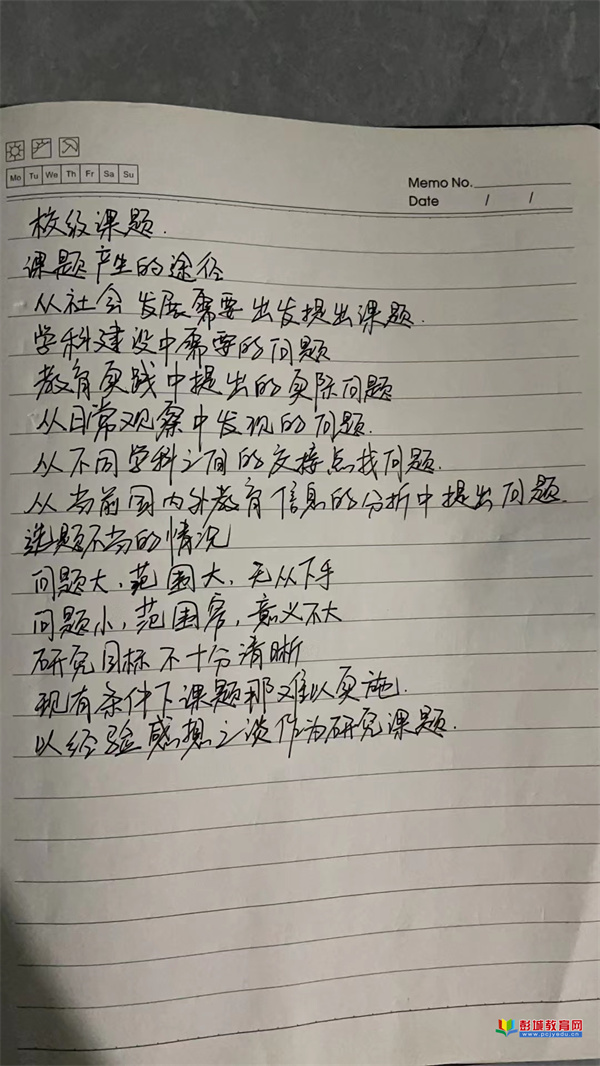 Mo Tu We Th Fr Sa Su
Memo No.
Date / /
校级课题.
课题产生的途径
从社会发展需要出发提出课题.
学科建设中需要的问题
教育实践中提出的实际问题
从日常观察中发现的问题.
从不同学科之间的交接点找问题.
从当前国内外教育信息的分析中提出问题.
选题不当的情况
问题大、范围大、无从下手
问题小、范围窄、意义不大
研究目标不十分清晰
现有条件下课题那难以实施.
以经验感想之谈作为研究课题.
彭城教育网
www.pcjyedu.cn